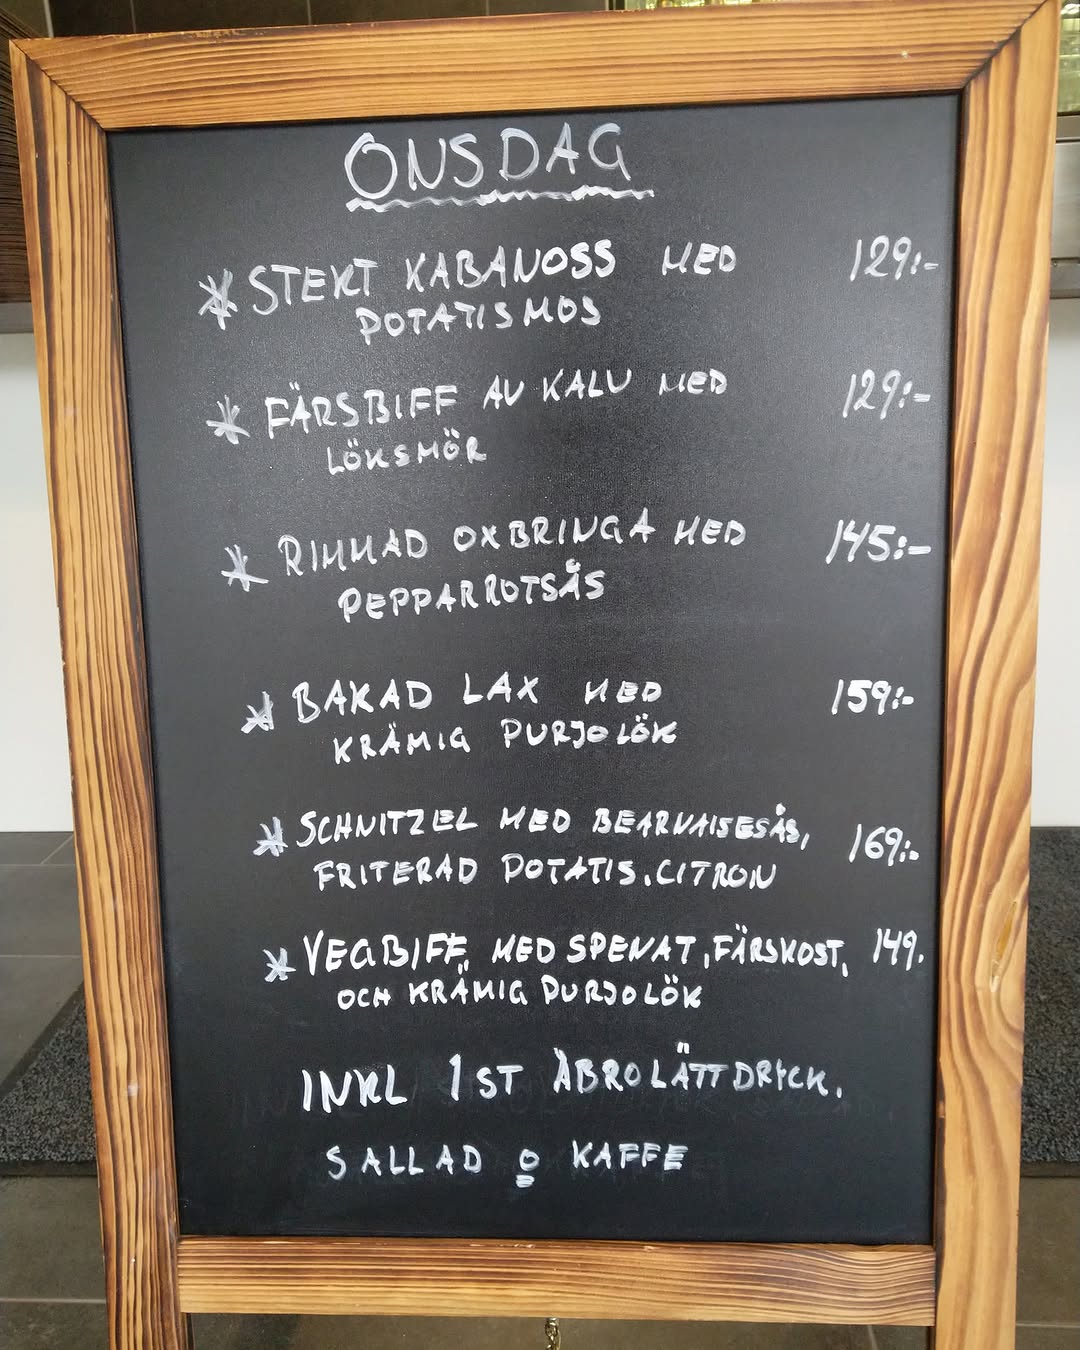 ONSDAG
* STEKT KABANOSS MED 129:-
POTATISMOS
* FÄRSBIFF AV KALV MED 129:-
LÖKSMÖR
* RIMMAD OXBRINGA MED 145:-
PEPPARROTSÅS
* BAKAD LAX MED 159:-
KRÄMIG PURJOLÖK
* SCHNITZEL MED BEARNAISESÅS, 169:-
FRITERAD POTATIS, CITRON
* VEGBIFF MED SPENAT, FÄRSKOST, 149.
OCH KRÄMIG PURJOLÖK
INKL 1ST ÅBRO LÄTTDRYCK.
SALLAD o KAFFE